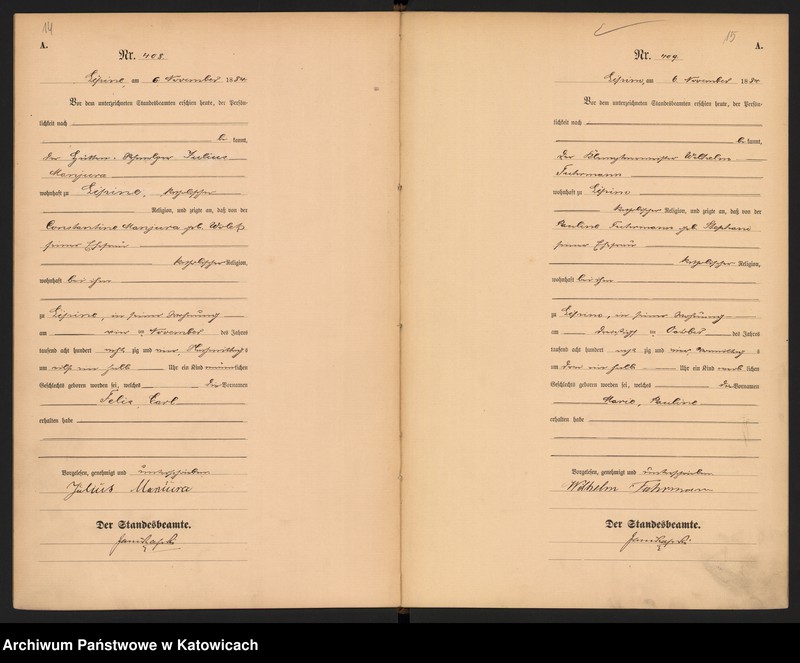 14
A.
Nr. 408.
Lipine, am 6 November 1884.
Vor dem unterzeichneten Standesbeamten erschien heute, der Persön-
lichkeit nach
be kannt,
der Hütten-Schmelzer Julius
Manjura
wohnhaft zu Lipine, katholischer
Religion, und zeigte an, daß von der
Constantine Manjura geb.
seiner Ehefrau
katholischer Religion,
wohnhaft bei ihm
zu Lipine, in seiner Wohnung
am November des Jahres
tausend acht hundert acht zig und vier, Nachmittags
um Uhr ein Kind männlichen
Geschlechts geboren worden sei, welches die Vornamen
Felix, Carl
erhalten habe
Vorgelesen, genehmigt und unterschrieben
Julius Manjura
Der Standesbeamte.
15
A.
Nr. 409.
Lipine, am 6. November 1884.
Vor dem unterzeichneten Standesbeamten erschien heute, der Persön-
lichkeit nach
be kannt,
der Wilhelm
Fuhrmann
wohnhaft zu Lipine
katholischer Religion, und zeigte an, daß von der
Pauline Fuhrmann geb. Stephani
seiner Ehefrau
katholischer Religion,
wohnhaft bei ihm
zu Lipine, in seiner Wohnung
am dreißigsten October des Jahres
tausend acht hundert acht zig und vier Vormittags
um Uhr ein Kind weib lichen
Geschlechts geboren worden sei, welches die Vornamen
Marie, Pauline
erhalten habe
Vorgelesen, genehmigt und unterschrieben
Wilhelm Fuhrmann
Der Standesbeamte.
Archiwum Państwowe w Katowicach